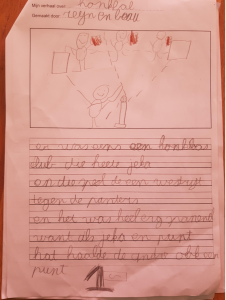 Mijn verhaal over: honkbal
Gemaakt door: reijn en boaz
er was eins een honkbal
club die heete jeka
en die speelde een wedstrijd
tegen de
en het was heel erg spanend
want als jeka een punt
hat haalde de
punt
1